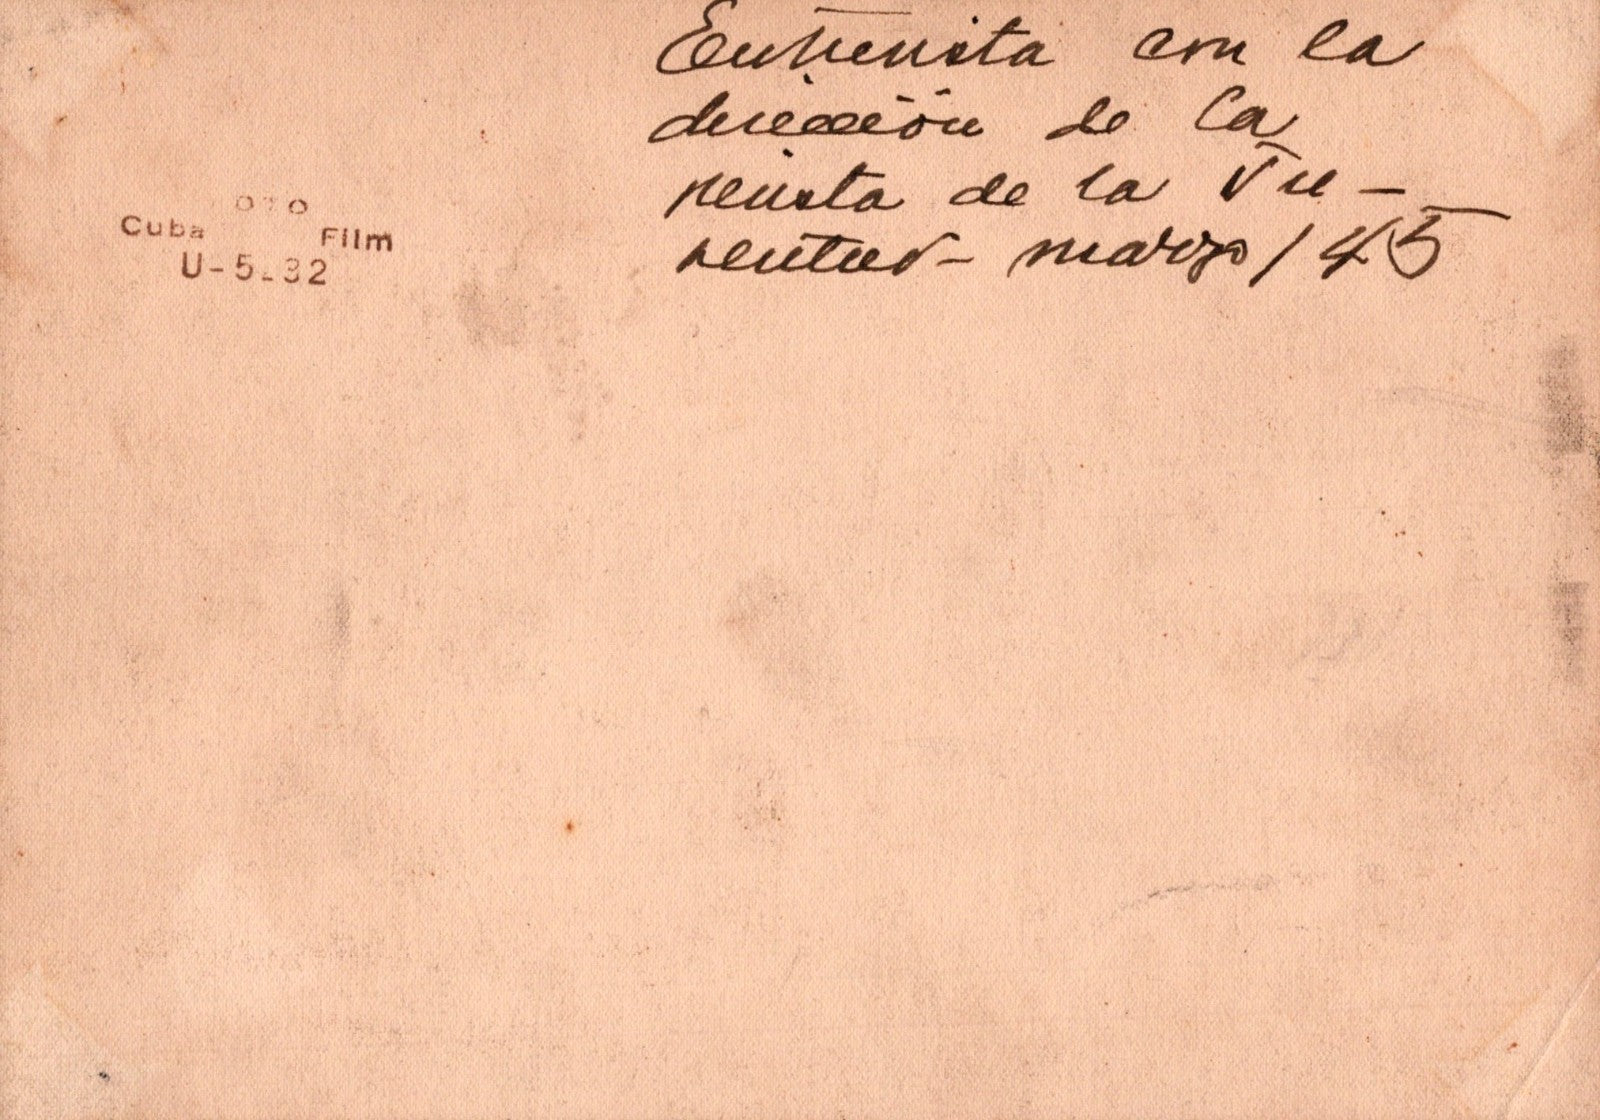 Entrevista con la
dirección de la
revista de la Ju-
ventud - marzo / 45
oto
Cuba Film
U-5-32